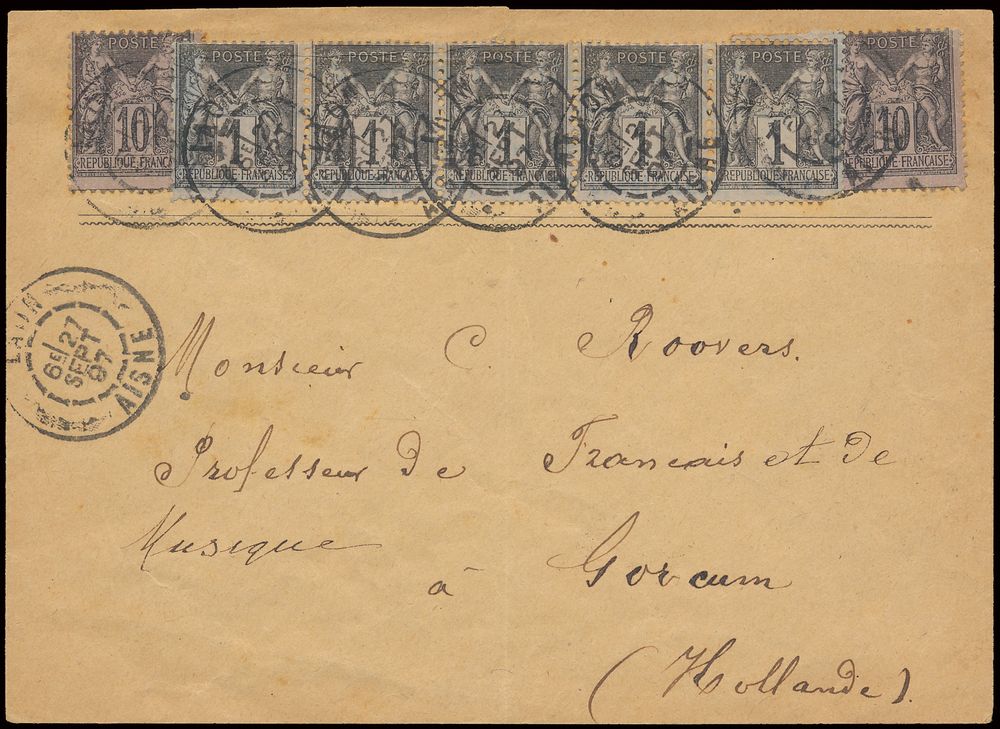 POSTE POSTE POSTE POSTE POSTE POSTE POSTE
10 1 1 1 1 1 10
REPUBLIQUE FRANCAISE REPUBLIQUE FRANÇAISE REPUBLIQUE FRANÇAISE REPUBLIQUE FRANÇAISE REPUBLIQUE FRANÇAISE REPUBLIQUE FRANÇAISE REPUBLIQUE FRANC
AISNE
LAON
6E/27
SEPT
97
AISNE
Monsieur C. Roovers.
Professeur de Francais et de
Musique
à Gorcum
(Hollande).